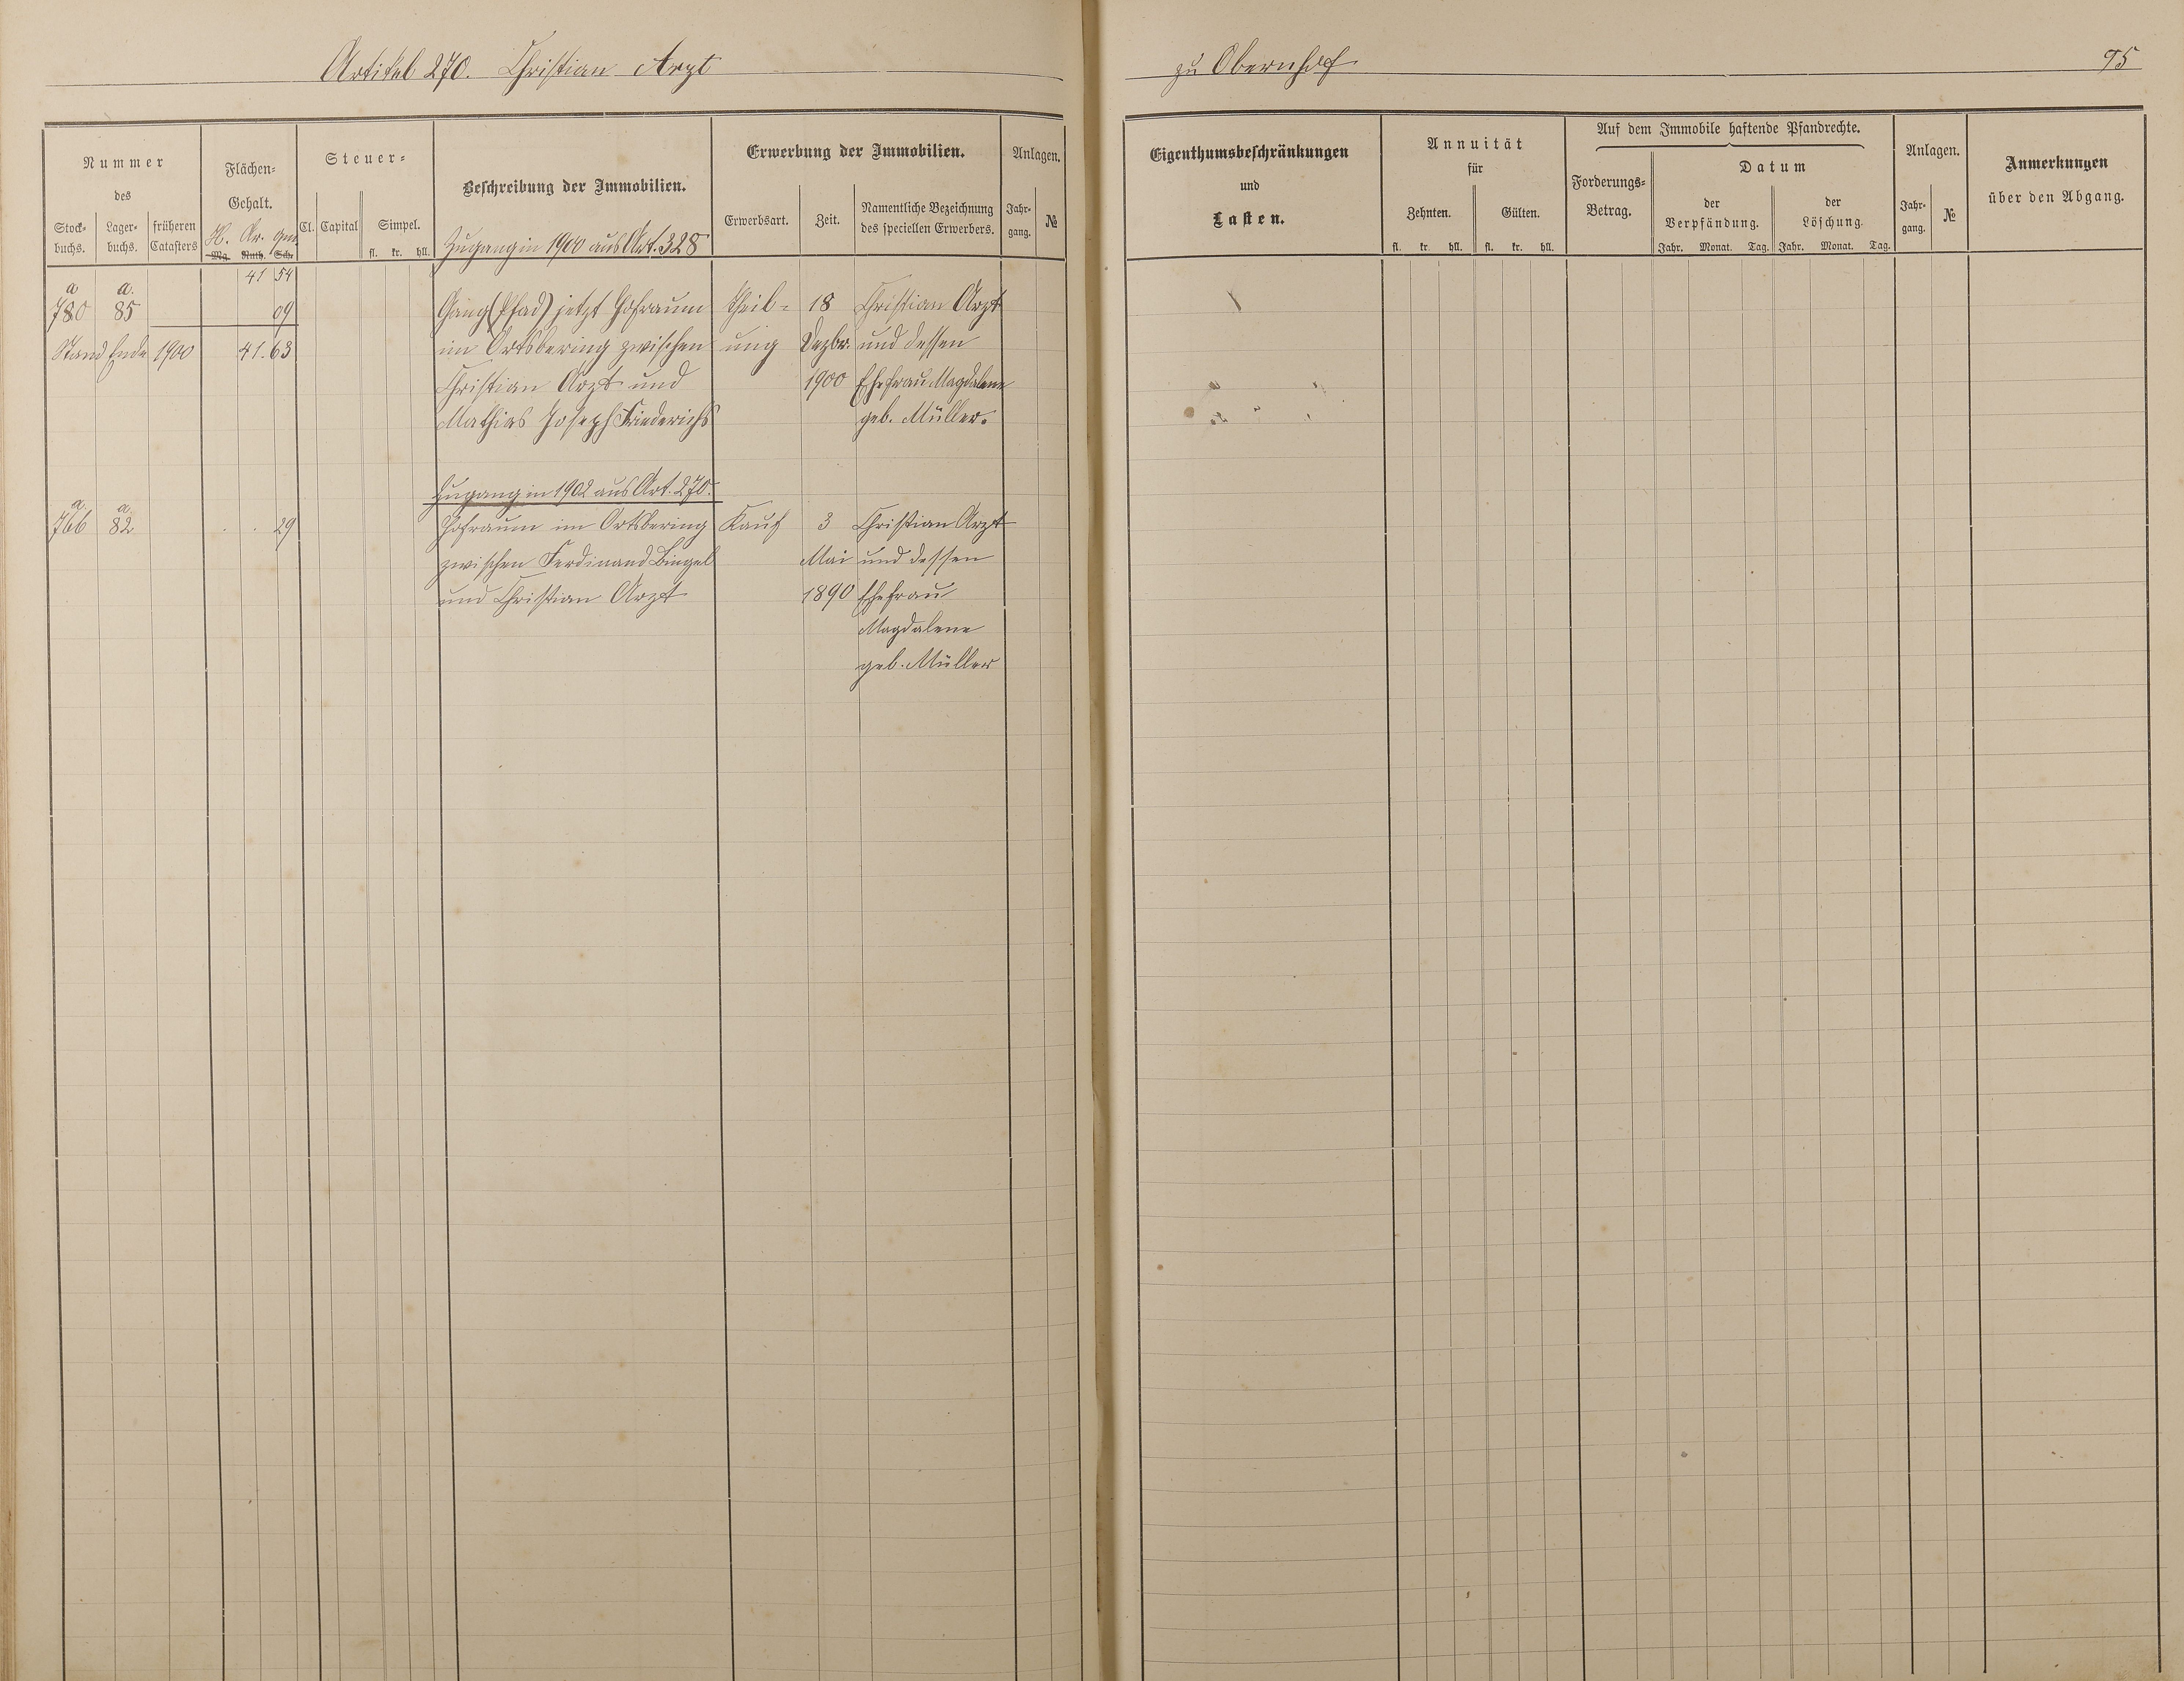 Artikel 270. Christian Arzt
zu Obernhof
95
Nummer
des
Stock-
buchs.
Lager-
buchs.
früheren
Catasters
Flächen-
Gehalt.
H. Ar. Qm.
Mg. Ruth. Sch.
Steuer-
Cl.
Capital
Simpel.
fl. kr. hll.
Beschreibung der Immobilien.
Erwerbung der Immobilien.
Erwerbsart.
Zeit.
Namentliche Bezeichnung
des speciellen Erwerbers.
Anlagen.
Jahr-
gang.
№
Eigenthumsbeschränkungen
und
Lasten.
Annuität
für
Zehnten.
Gülten.
fl. kr. hll. fl. kr. hll.
Auf dem Immobile haftende Pfandrechte.
Forderungs-
Betrag.
Datum
der
Verpfändung.
der
Löschung.
Jahr. Monat. Tag. Jahr. Monat. Tag.
Anlagen.
Jahr-
gang.
№
Anmerkungen
über den Abgang.
Zugang in 1900 aus Art. 328
41 54
a a.
780 85 09 Gang (Pfad) jetzt Hofraum Theil- 18 Christian Arzt
Stand Ende 1900 41.63 im Ortsbering zwischen ung Dezbr. und dessen
Christian Arzt und 1900 Ehefrau Magdalene
Mathias Joseph Friederichs geb. Müller.
Zugang in 1902 aus Art. 270.
a a.
766 82 . . 29 Hofraum im Ortsbering Kauf 3 Christian Arzt
zwischen Ferdinand Bingel Mai und dessen
und Christian Arzt 1890 Ehefrau
Magdalene
geb. Müller